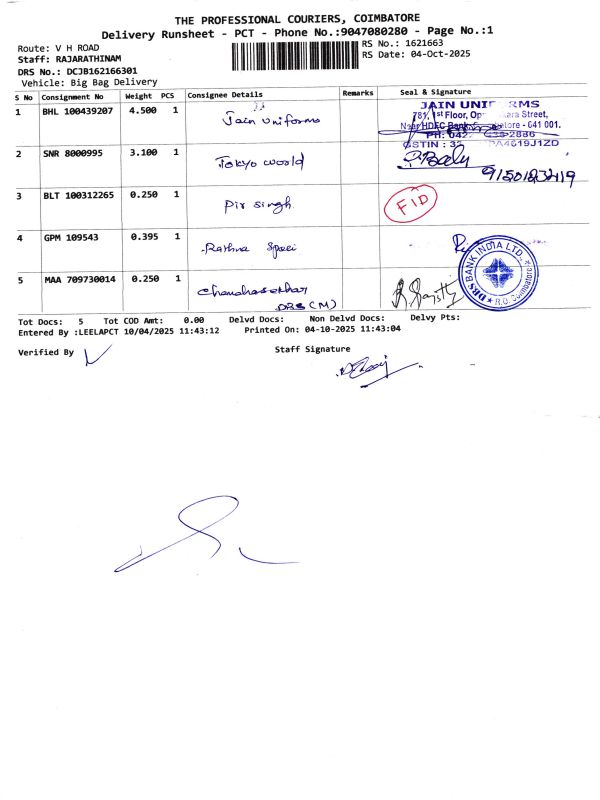 THE PROFESSIONAL COURIERS, COIMBATORE
Delivery Runsheet - PCT - Phone No.:9047080280 - Page No.:1
Route: V H ROAD
RS No.: 1621663
Staff: RAJARATHINAM
RS Date: 04-Oct-2025
DRS No.: DCJB162166301
Vehicle: Big Bag Delivery
S No Consignment No Weight PCS Consignee Details Remarks Seal & Signature
1 BHL 100439207 4.500 1 Jain Uniforms
JAIN UNIF RMS
1st Floor, Street,
HDFC Bank, - 641 001.
PH: 042 2886
GSTIN : 33 PA4619J1ZD
2 SNR 8000995 3.100 1 Tokyo World
3 BLT 100312265 0.250 1 Pir Singh FID
4 GPM 109543 0.395 1 Rathna
DBS BANK INDIA LTD. ★ R.O. Coimbatore ★
5 MAA 709730014 0.250 1 Chandrasekhar
DBS (M)
Tot Docs: 5 Tot COD Amt: 0.00 Delvd Docs: Non Delvd Docs: Delvy Pts:
Entered By :LEELAPCT 10/04/2025 11:43:12 Printed On: 04-10-2025 11:43:04
Verified By
Staff Signature